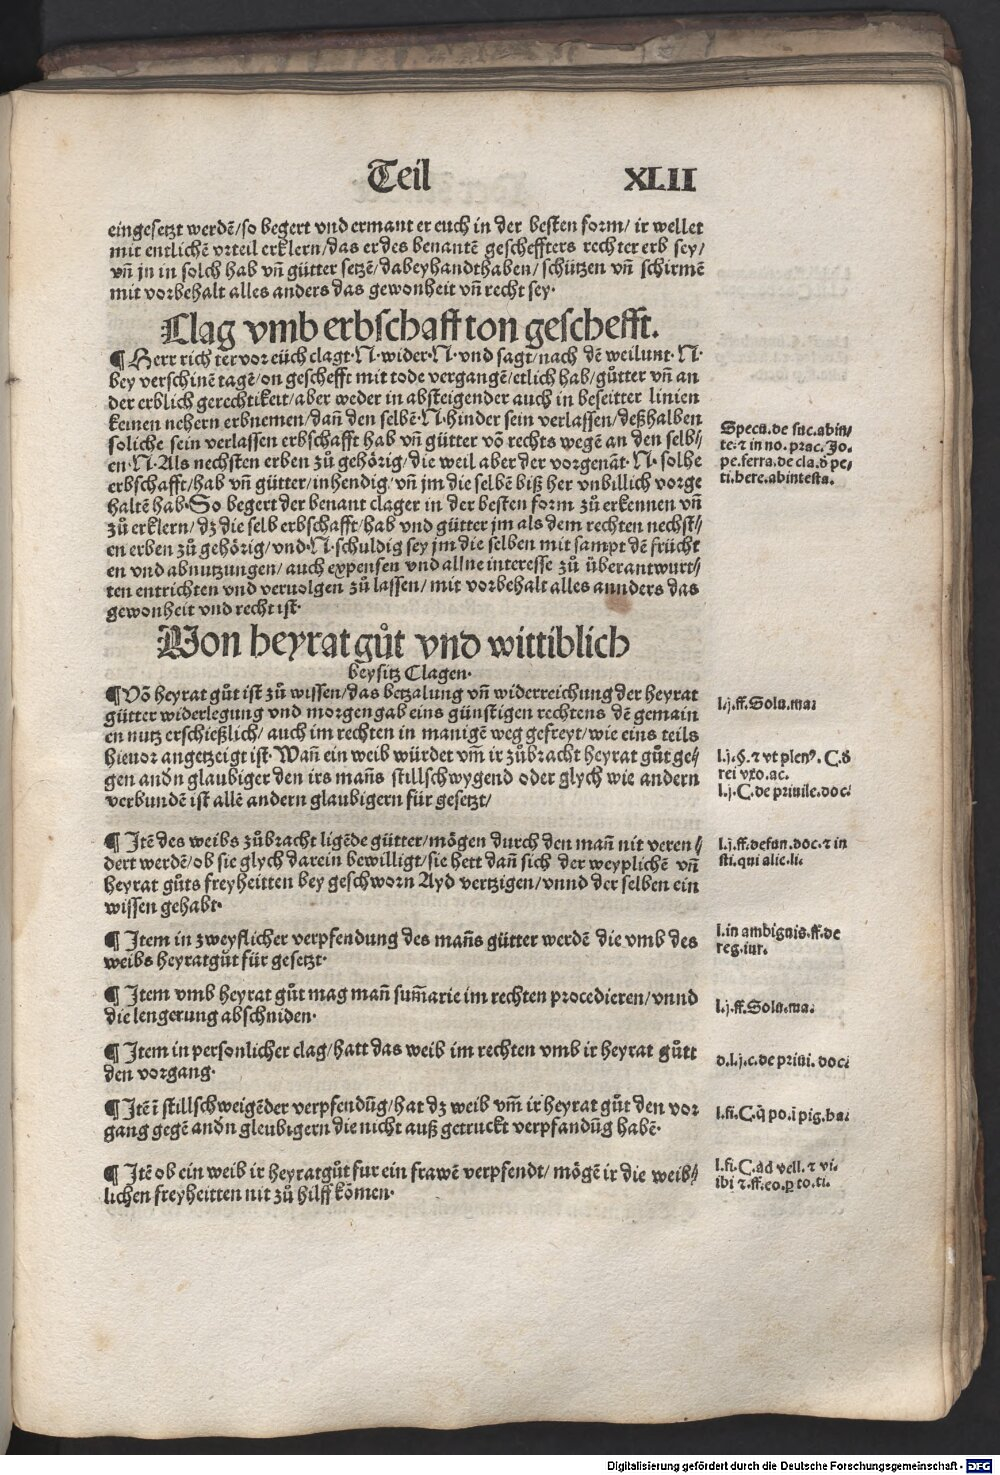 Teil XLII
eingesetzt werdẽ/so begert vnd ermant er euch in der besten form/ ir wellet
mit entlichẽ vrteil erklern/das er des benantẽ gescheffters rechter erb sey/
vñ jn in solch hab vñ gütter setzẽ/dabey handthaben/ schützen vñ schirmẽ
mit vorbehalt alles anders das gewonheit vñ recht sey·
Clag vmb erbschafft on geschefft.
¶ Herr richter vor eüch clagt·N·wider·N·vnd sagt/nach dẽ weilunt·N·
bey verschinẽ tagẽ/on geschefft mit tode vergangẽ/etlich hab/gůtter vñ an
der erblich gerechtikeit/aber weder in absteigender auch in beseitter linien
keinen nehern erbnemen/dañ den selbẽ·N·hinder sein verlassen/deßhalben
soliche sein verlassen erbschafft hab vñ gütter võ rechts wegẽ an den selb//
en·N·Als nechsten erben zů gehörig/die weil aber der vorgenãt·N·solhe
erbschafft/hab vñ gütter/inhendig/vñ jm die selbẽ biß her vnbillich vorge
haltẽ hab·So begert der benant clager in der besten form zů erkennen vñ
zů erklern/dz die selb erbschafft/hab vnd gütter jm als dem rechten nechst//
en erben zů gehörig/vnd·N·schuldig sey jm die selben mit sampt dẽ frücht
en vnd abnutzungen/ auch expensen vnd allne interesse zů überantwurt//
ten entrichten vnd veruolgen zů lassen/ mit vorbehalt alles annders das
gewonheit vnd recht ist·
Specu.de suc.abin/
te.⁊ in no.prac.Jo.
pe.ferra.de cla.ð pe/
ti.here.abintesta.
Von heyrat gůt vnd wittiblich
beysitz Clagen·
¶ Võ heyrat gůt ist zů wissen/das betzalung vñ widerreichung der heyrat
gütter widerlegung vnd morgengab eins günstigen rechtens dẽ gemain
en nutz erschießlich/ auch im rechten in manigẽ weg gefreyt/wie eins teils
hieuor angetzeigt ist·Wañ ein weib würdet vm̃ ir zůbracht heyrat gůt ge/
gen andn glaubiger den irs mañs stillschwygend oder glych wie andern
verbundẽ ist allẽ andern glaubigern für gesetzt/
l.j.ff.Solu.ma:
l.j.§.⁊ vt plenꝰ.C.ð
rei vxo.ac.
l.j.C.de priuile.doc:
¶ Jtẽ des weibs zůbracht ligẽde gütter/mögen durch den mañ nit veren//
dert werdẽ/ob sie glych darein bewilligt/sie hett dañ sich der weyplichẽ vñ
heyrat gůts freyheitten bey geschworn Ayd vertzigen/vnnd der selben ein
wissen gehabt·
l.j.ff.defun.doc.⁊ in
sti.qui alie.li.
¶ Jtem in zweyflicher verpfendung des mañs gütter werdẽ die vmb des
weibs heyratgůt für gesetzt·
l.in ambiguis.ff.de
reg.iur.
¶ Jtem vmb heyrat gůt mag mañ sum̃arie im rechten procedieren/vnnd
die lengerung abschniden·
l.j.ff.Solu.ma:
¶ Jtem in personlicher clag/hatt das weib im rechten vmb ir heyrat gůtt
den vorgang·
d.l.j.c.de priui.doc:
¶ Jtẽ ĩ stillschweigẽder verpfendũg/hat dz weib vm̃ ir heyrat gůt den vor
gang gegẽ andn gleubigern die nicht auß getruckt verpfandũg habẽ·
l.fi.C.q̃ po.ĩ pig.ha:
¶ Jtẽ ob ein weib ir heyratgůt fur ein frawẽ verpfendt/ mögẽ ir die weib//
lichen freyheitten nit zů hilff kõmen·
l.fi.C.ad vell.⁊ vi.
ibi ⁊.ff.eo.ꝑ to.ti.
Digitalisierung gefördert durch die Deutsche Forschungsgemeinschaft - DFG